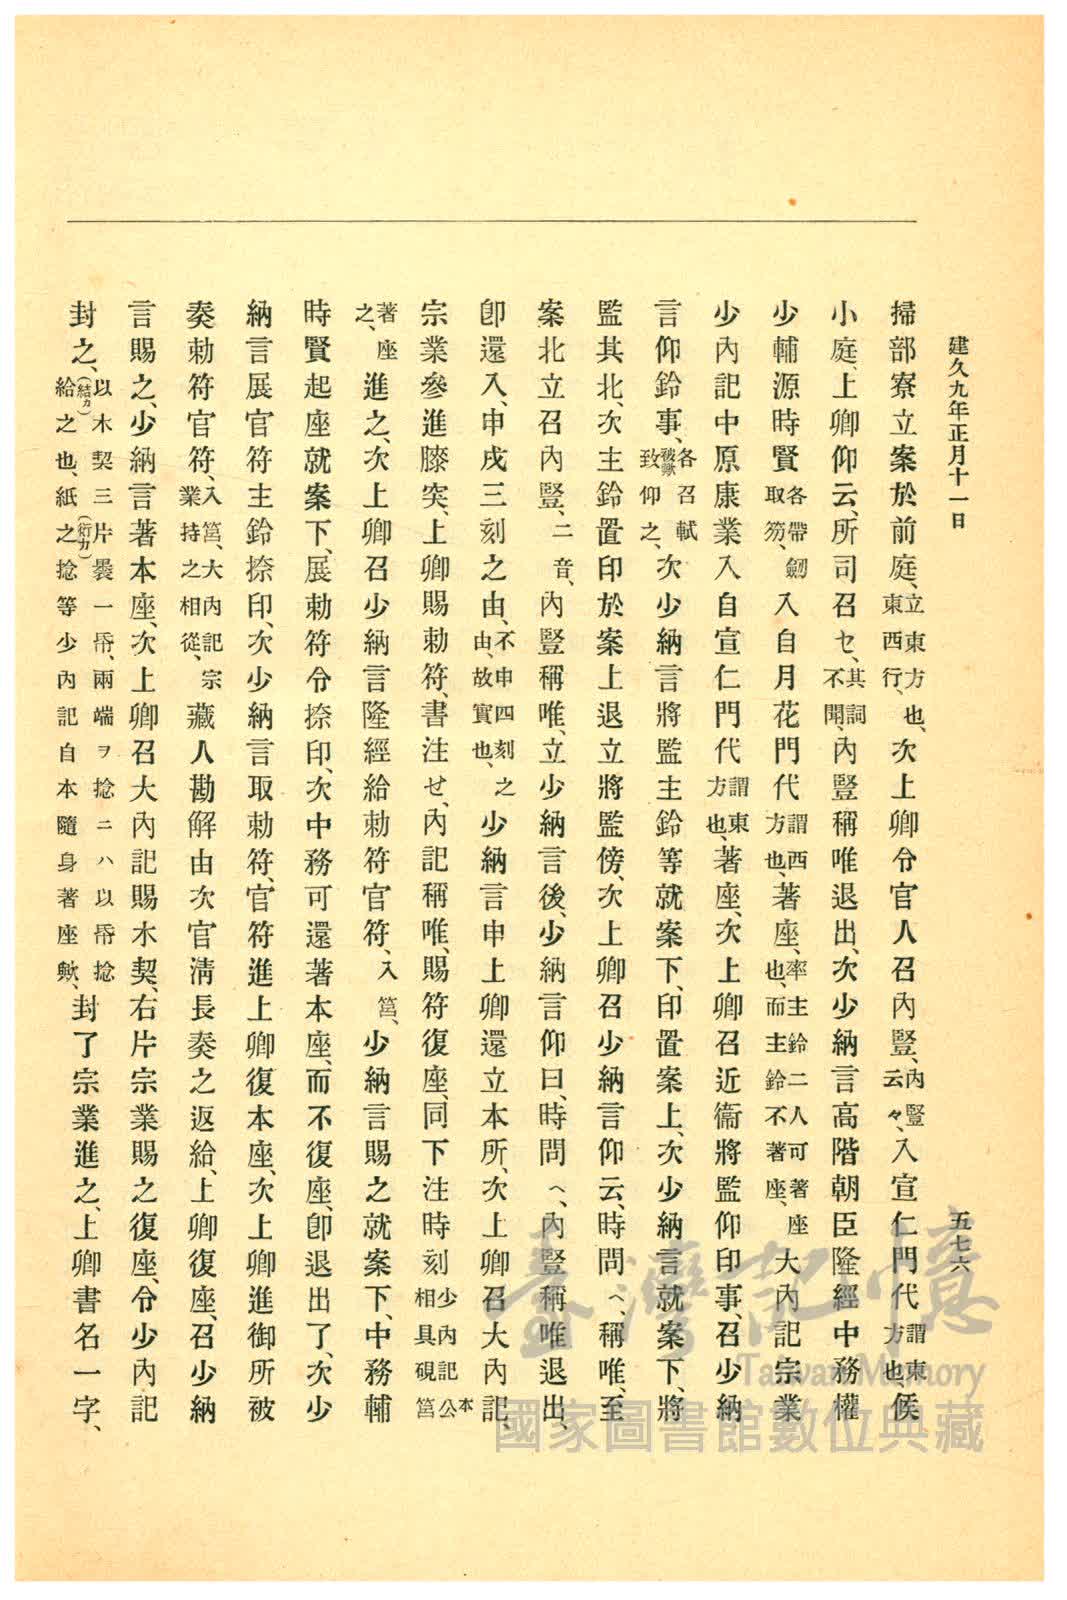 建久九年正月十一日
五七六
掃部寮立案於前庭、立東方也、東西行、次上卿令官人召內豎、內豎云々、入宣仁門代謂東方也、候
小庭、上卿仰云、所司召セ、其詞不聞、內豎稱唯退出、次少納言高階朝臣隆經中務權
少輔源時賢各帶劒取笏、入自月花門代謂西方也、著座、率主鈴二人可著座也、而主鈴不著座、大內記宗業
少內記中原康業入自宣仁門代謂東方也、著座、次上卿召近衞將監仰印事、召少納
言仰鈴事、各召軾被歟致仰之、次少納言將監主鈴等就案下、印置案上、次少納言就案下、將
監其北、次主鈴置印於案上退立將監傍、次上卿召少納言仰云、時問ヘ、稱唯、至
案北立召內豎、二音、內豎稱唯、立少納言後、少納言仰曰、時問ヘ、內豎稱唯退出、
卽還入、申戌三刻之由、不申四刻之由、故實也、少納言申上卿還立本所、次上卿召大內記、
宗業參進膝突、上卿賜勅符、書注せ、內記稱唯、賜符復座、同下注時刻少內記公本相具硯筥
著座之、進之、次上卿召少納言隆經給勅符官符、入筥、少納言賜之就案下、中務輔
時賢起座就案下、展勅符令捺印、次中務可還著本座、而不復座、卽退出了、次少
納言展官符主鈴捺印、次少納言取勅符、官符進上卿復本座、次上卿進御所被
奏勅符官符、入筥、大內記宗業持之相從、藏人勘解由次官淸長奏之返給、上卿復座、召少納
言賜之、少納言著本座、次上卿召大內記賜木契、右片宗業賜之復座、令少內記
封之、以木契三片裊一帋、兩端ヲ捻ニハ以帋捻給(結カ)之也、紙之(衍カ)捻等少內記自本隨身著座歟、封了宗業進之、上卿書名一字、
臺灣記憶
Taiwan Memory
國家圖書館數位典藏